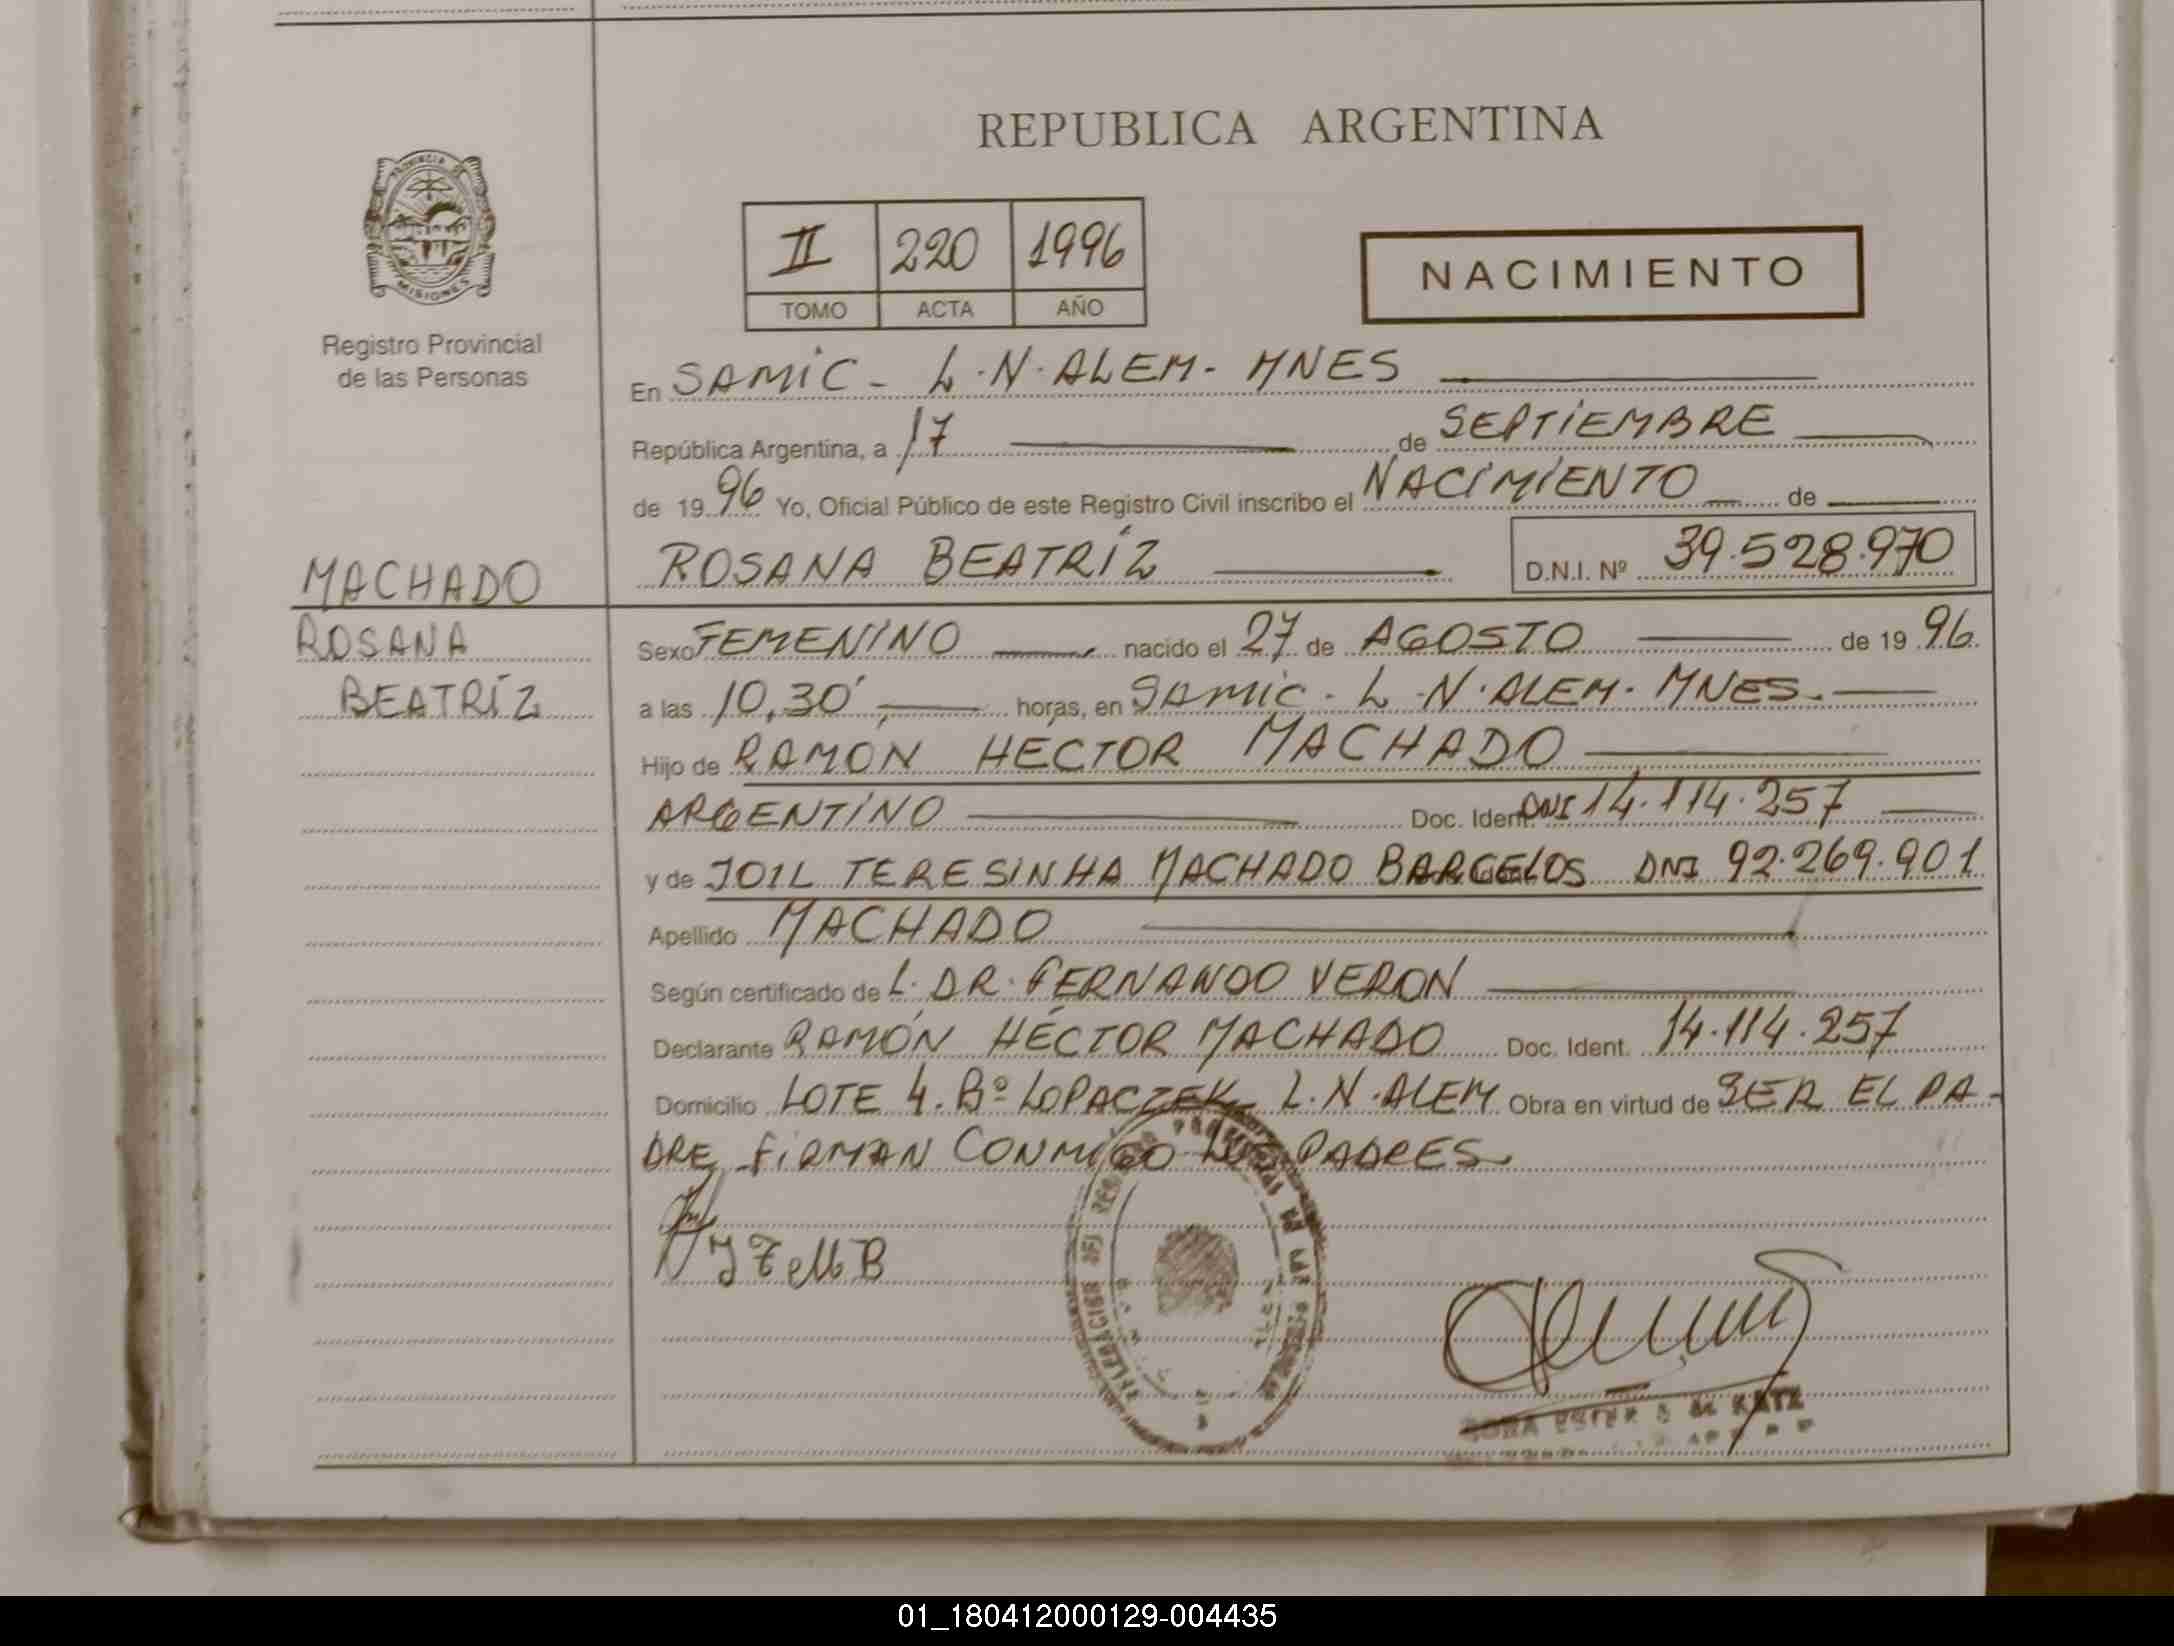 REPUBLICA ARGENTINA
PROVINCIA DE
MISIONES
Registro Provincial
de las Personas
II 220 1996
TOMO ACTA AÑO
NACIMIENTO
En SAMIC - L.N. ALEM - MNES
República Argentina, a 17 de SEPTIEMBRE
de 1996 Yo, Oficial Público de este Registro Civil inscribo el NACIMIENTO de
ROSANA BEATRÍZ D.N.I. Nº 39.528.970
MACHADO
ROSANA
BEATRÍZ
Sexo FEMENINO nacido el 27 de AGOSTO de 1996.
a las 10,30' horas, en SAMIC - L.N. ALEM - MNES.
Hijo de RAMON HECTOR MACHADO
ARGENTINO Doc. Ident. DNI 14.114.257
y de JOIL TERESINHA MACHADO BARCELOS DNI 92.269.901
Apellido MACHADO
Según certificado de L. DR. FERNANDO VERON
Declarante RAMÓN HÉCTOR MACHADO Doc. Ident. 14.114.257
Domicilio LOTE 4. Bº LOPACZEK L.N. ALEM Obra en virtud de SER EL PA-
DRE, FIRMAN CONMIGO LOS PADRES.
J T M B
01_180412000129-004435